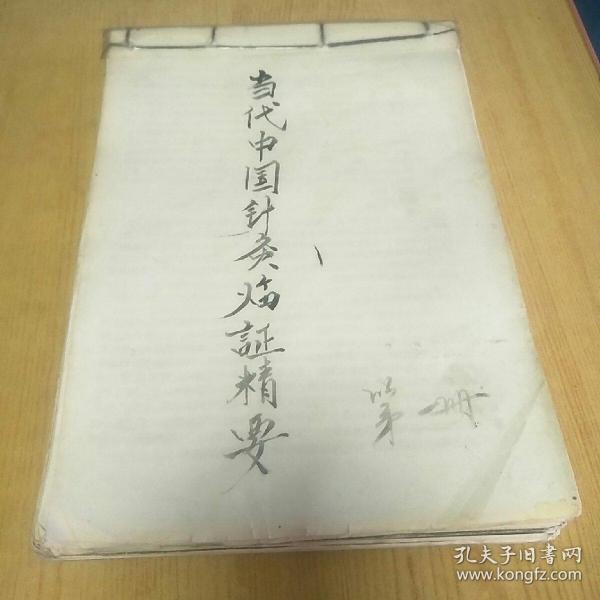 当代中国针灸临証精要
第一册
孔夫子旧书网
www.kongfz.com